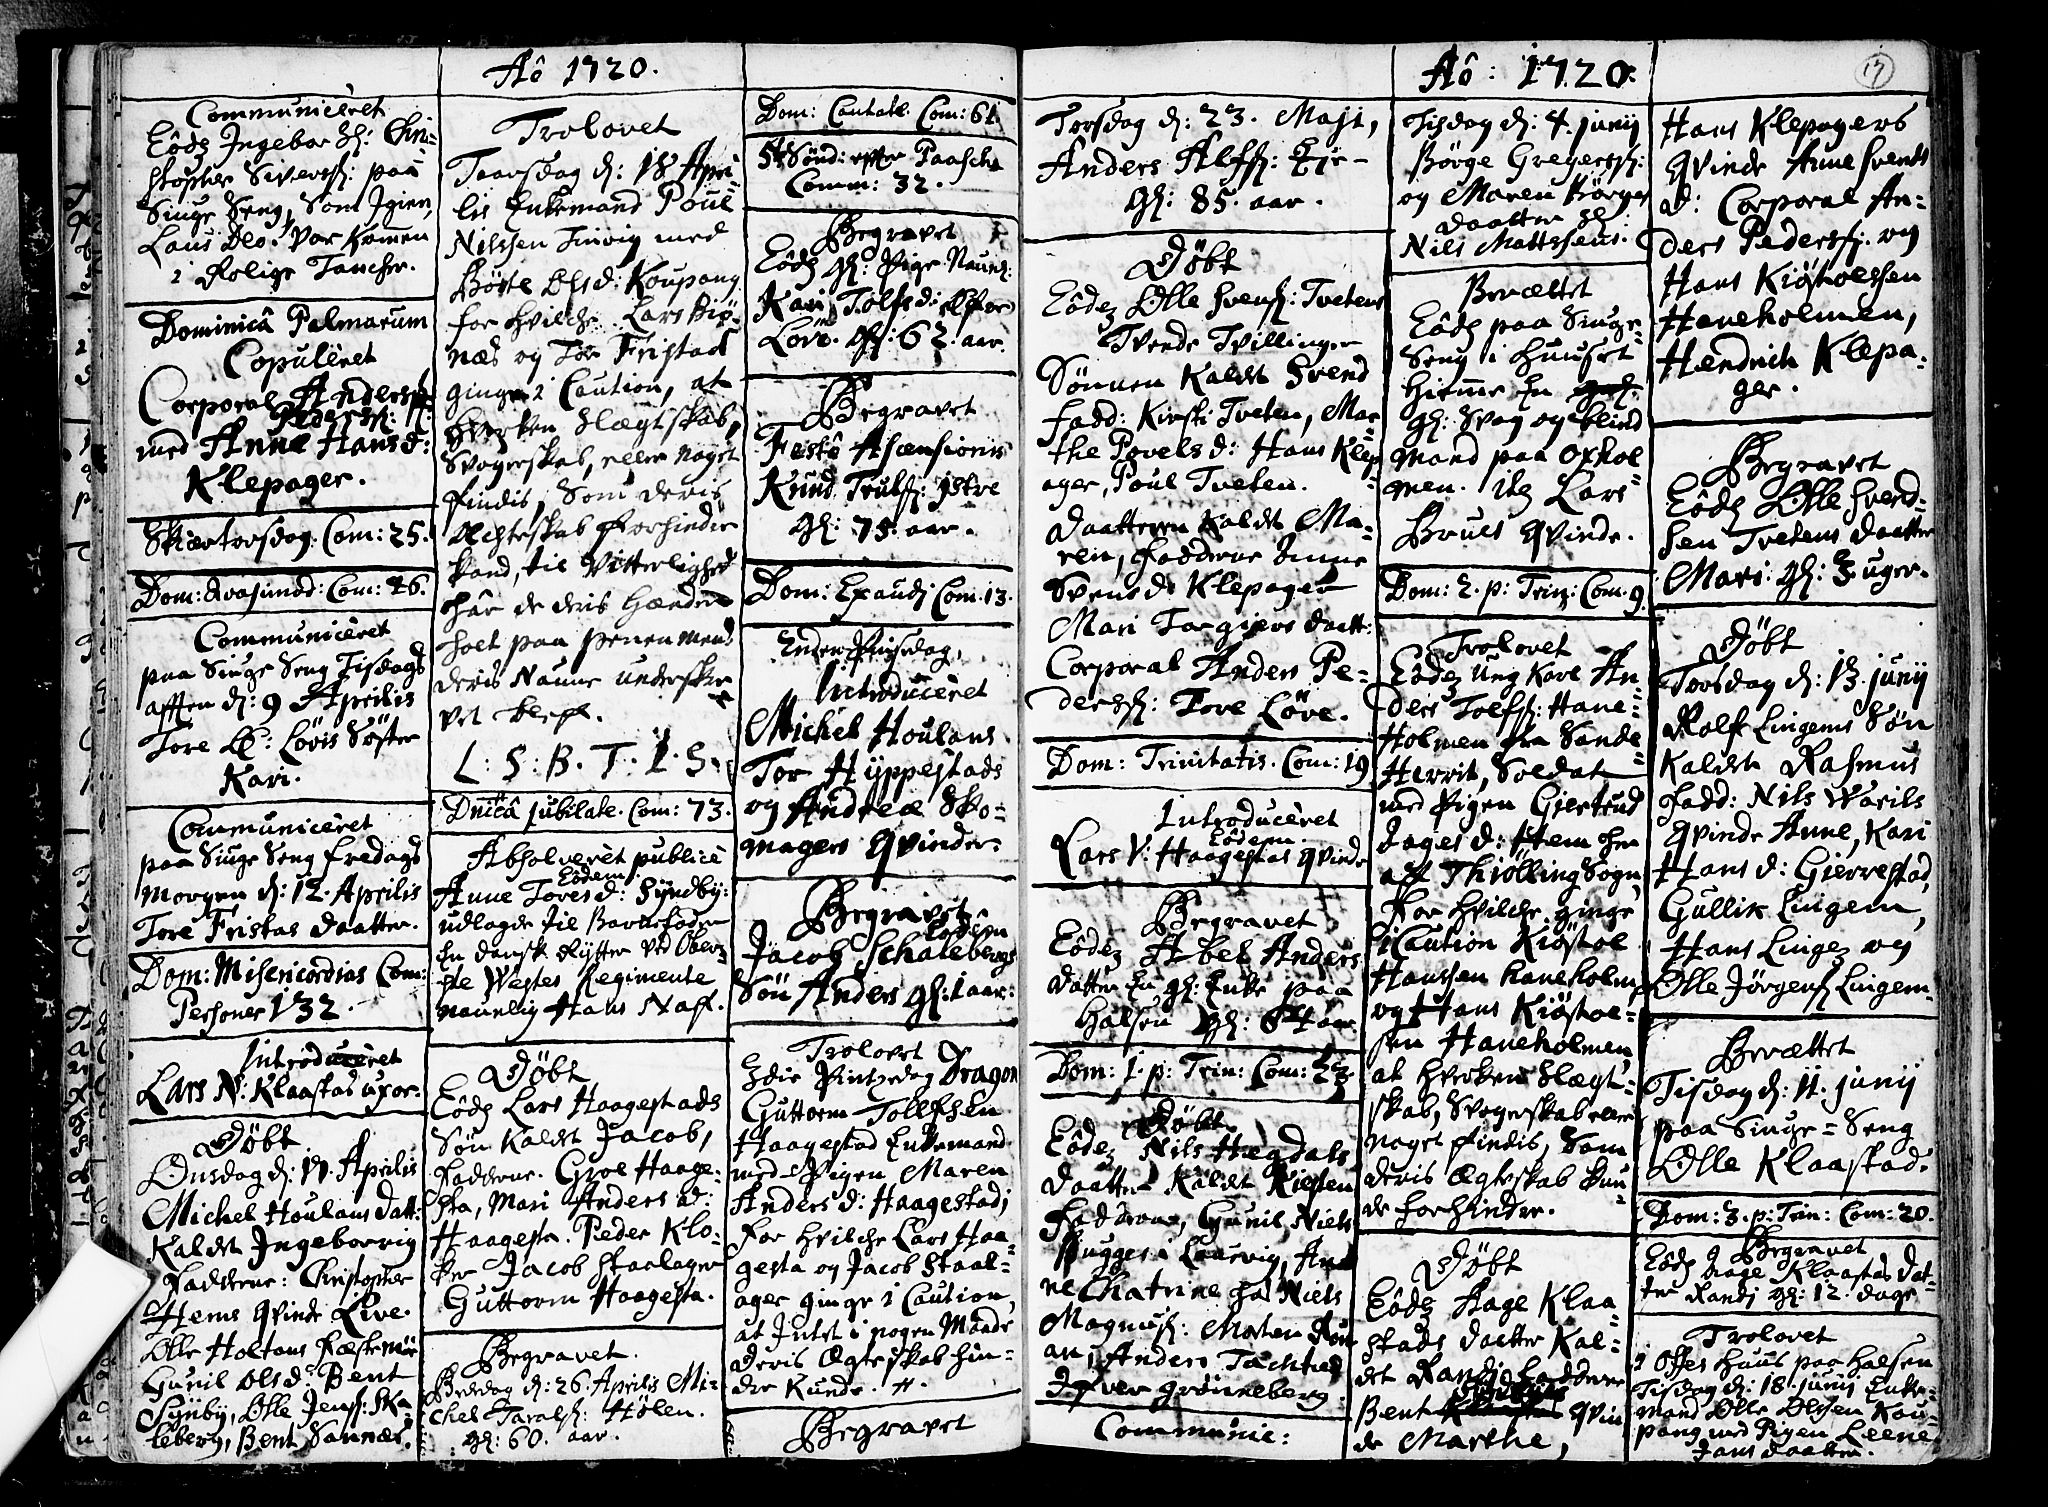 Aô 1720.
Communicêret
Eôdẽ Ingebor Sl: Chri-
stopher Sivers: paa
Siuge Seng, Som Igien,
Laus Deo. Var Kommen
i Rolige Tancher.
Dominicâ Palmarum
Copulêret
Corporal Anders
Peders:
med Anne Hans d:
Klepager.
Skiærtorsdag. Com: 25.
Dom: Quasimod: Com: 46.
Communicêret
paa Siuge Seng Tisdags
afften d: 9 Aprilis
Tore Lövis Söster
Kari.
Communicêret
paa Siuge Seng fredags
Morgen d: 12. Aprilis
Tore Fristas daatter.
Dom: Misericordias Com:
Personer 132.
Introducêret
Lars N: Klaastad uxor.
Döbt
Onsdag d: 17. Aprilis
Michel Houlans datt:
Kaldet Ingeborrig
Fadderne: Christopher
Hems Qvinde Live.
Olle Holtans Festemöe
Gunil Ols d: Bent
Synby, Olle Jens: Ska
leberg, Bent Sannær.
Trolovet
Taarsdag d: 18 Apri-
lis Enkemand Poul
Nilssen med
Börte Ols d: Koupang
for hvilche Lars
næs og Tor Fristad
ginge i Caution, at
hverken Slægtskab,
Svogerskab, eller noget
findis, Som deris
Ægteskab forhindre
kand, til Vitterlighed
har de deris Hænder
holt paa penen mens
deris Naune underskre
vet
L: S: B. T. L. S.
Dnicâ jubilate. Com: 73.
Absolverêt publicè
Eôdem
Anne Tores d: Syndby:
udlagde til Barnefader
En dansk Rytter ved Ober-
ste Westes Regimente
naunlig Hans Naff.
Döbt
Eôdẽ Lars Haagestads
Sön Kaldet Jacob,
Fadderne. Groe Haage-
sta, Mari Anders d:
Haagesta. Peder Klo-
ker Jacob Staalager
Guttorm Haagesta.
Begravet.
d: 26. Aprilis Mi-
chel Tarals: Hölen.
gl: 60. aar.
Dom: Cantate Com: 61.
5te Sönd: efter Paasche
Comm: 32.
Begravet
Eôdẽ gl: Pige Naunl:
Kari Tolfs d: Efter
Löve. gl: 62. aar.
Begravet
Festô Ascensionis
Knud Truls: Istre
gl: 75. aar.
Dom: Exaudi Com: 13.
Anden Pinsedag,
Introducêret
Michel Houlans
Tor Hyppestads
og Andreæ Sko-
magers Qvinder.
Begravet
Eodem
Jacob Schalebergs
Sön Anders gl: 1 aar.
Trolovet
3die Pintzedag Dragon
Guttorm Tollfsen
Haagestad Enkemand
med Pigen Maren
Anders d: Haagestad;
For hvilche Lars Haa-
gesta og Jacob Staal-
ager ginge i Caution,
at Intet i nogen Maade
deris Ægteskab hin-
dre Kunde.
Begravet
Aô: 1720.
17
Torsdag d: 23. Maji,
Anders Alfs:
gl: 85. aar.
Döbt
Eôdẽ Olle Svens: Tvetens
Tvende Tvillinger
Sönnen Kaldet Svend
fadd: Kirsti Tveten, Mar-
the Povels d: Hans Klep
ager, Poul Tveten.
daatteren Kaldet Ma-
ren, fadderne Anne
Svens d: Klepager
Mari Torgiers daatt:
Corporal Anders Pe-
ders: Tore Löve.
Dom: Trinitatis. Com: 19
Introducêret
Eôdem
Lars V: Haagestas qvinde
Begravet
Eôdẽ Abel Anders
datter En gl: Enke paa
Halsen gl: 84 aar
Dom: 1. p: Trin: Com: 23.
Döbt
Eôdẽ Nils Hægdals
daatter Kaldet Kirsten
Fadderne, Gunil Niels
Bugges i Laurvig, An
ne Chatrine hos Niels
Magnus: Morten
an, Anders
Ifver Grönneberg.
Communic:
Tisdag d: 4. junij
Börge Gregers:
og Maren Börges
daatter Sl:
Nils Mattssens.
Berættet
Eôdẽ paa Siuge
Seng i Huuset
hiemme En
gl: Svag og blind
mand paa Oxhol
men. Itẽ Lars
Bruus Qvinde.
Dom: 2. p: Trin: Com. 9.
Trolovet
Eôdẽ Ung Karl An-
ders Toelfs: Hane-
Holmen fra Sande-
Herrit, Soldat
med Pigen Giertrud
Jages d: Hem her
aff Thiölling Sogn,
For hvilche ginge
i Caution Kiöstol
Hanssen Haneholm
og Hans Kiöstol-
sen Haneholmen
at hverken Slægt-
skab, Svogerskab eller
noget findis, Som
deris Ægteskab kun-
de forhindre.
Döbt
Eôdẽ Aage Klaa
stads daatter Kal-
det Randi, fadderne
Bent Qvin
de Marthe,
Hans Klepagers
Qvinde Anne Svends
d: Corporal An-
ders Peders: og
Hans Kiöstoelsen
Haneholmen,
Hendrich Klepa-
ger.
Begravet
Eôdẽ Olle Svend-
sen Tvetens daatter
Mari: gl: 3. uger.
Döbt
Torsdag d: 13. junij
Rolf Lingems Sön
Kaldet Rasmus
Fadd: Nils Warils
Qvinde Anne, Kari
Hans d: Gierrestad,
Gullik Lingem,
Hans Lingẽ og
Olle Jörgens: Lingem.
Berættet
Tisdag d: 11. junij
paa Siuge-Seng
Olle Klaastad.
Dom: 3. p: Trin: Com: 20.
Begravet
Eôdẽ Aage Klaastas dat-
ter Randi gl: 12. dage
Trolovet
i Offes Huus paa Halsen
Tisdag d: 18. junij Enke-
mand Olle Olssen Kou-
pang med Pigen Leene
Jans daatter.